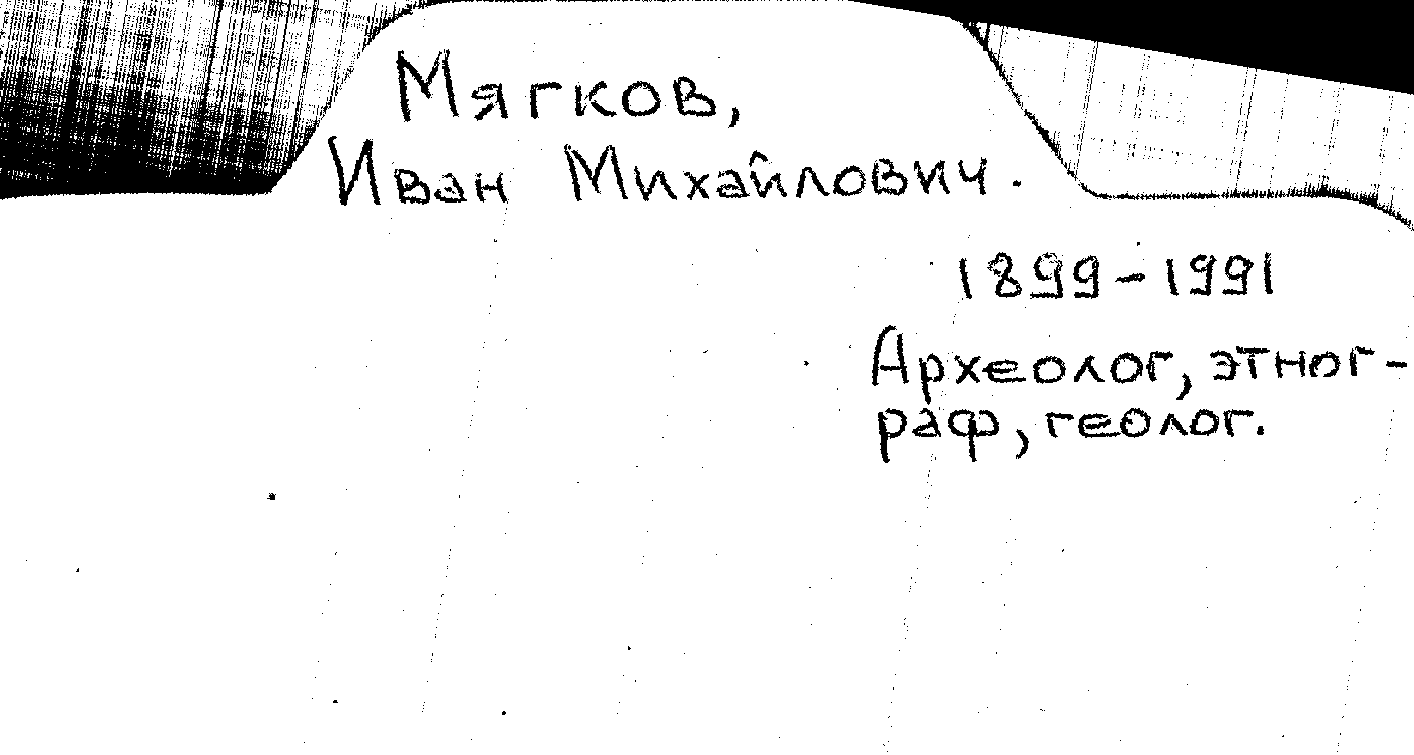 Мягков,
Иван Михайлович.
1899-1991
Археолог, этног-
раф, геолог.